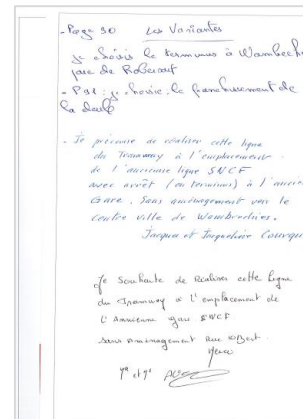 - Page 90 Les Variantes
je choisis le terminus à Wambrech
parc de Robersart
- P91 : je choisie le franchissement de
la deule
- Je préconise de réaliser cette ligne
du Tramway à l'emplacement
de l'ancienne ligne SNCF
avec arrêt (ou terminus) à l'ancie
Gare. Sans aménagement vers le
centre ville de Wambrechies.
Jacques et Jacqueline
Je Souhaite de Realiser cette ligne
du Tramway a l'emplacement de
l'Ancienne gare SNCF
sans aménagement Rue
et